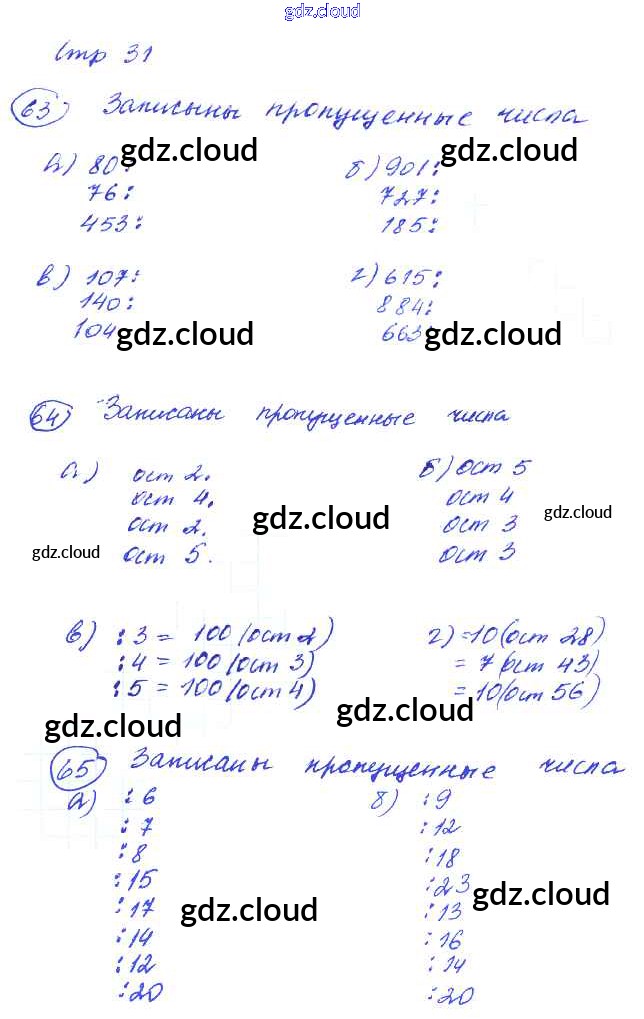 gdz.cloud
Стр 31
63) Записыны пропущенные числа
а) 80: б) 901:
gdz.cloud gdz.cloud
76: 727:
453: 185:
в) 107: г) 615:
140: 884:
104 663:
gdz.cloud gdz.cloud
64) Записаны пропущенные числа
а) ост 2. б) ост 5
ост 4. ост 4
gdz.cloud gdz.cloud
ост 2. ост 3
gdz.cloud ост 5. ост 3
в) :3 = 100 (ост 2) г) =10 (ост 28)
:4 = 100 (ост 3) = 7 (ост 43)
:5 = 100 (ост 4) = 10 (ост 56)
gdz.cloud gdz.cloud
65) Записаны пропущенные числа
а) :6 б) :9
:7 :12
:8 :18
:15 :23
gdz.cloud
:17 :13
gdz.cloud
:14 :16
:12 :14
:20 :20